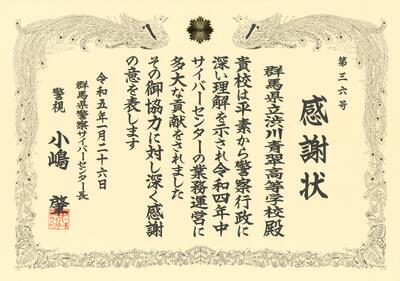 第三六号
感謝状
群馬県立渋川青翠高等学校殿
貴校は平素から警察行政に
深い理解を示され令和四年中
サイバーセンターの業務運営に
多大な貢献をされました
その御協力に対し深く感謝
の意を表します
令和五年二月二十六日
群馬県警察サイバーセンター長
警視 小嶋 肇